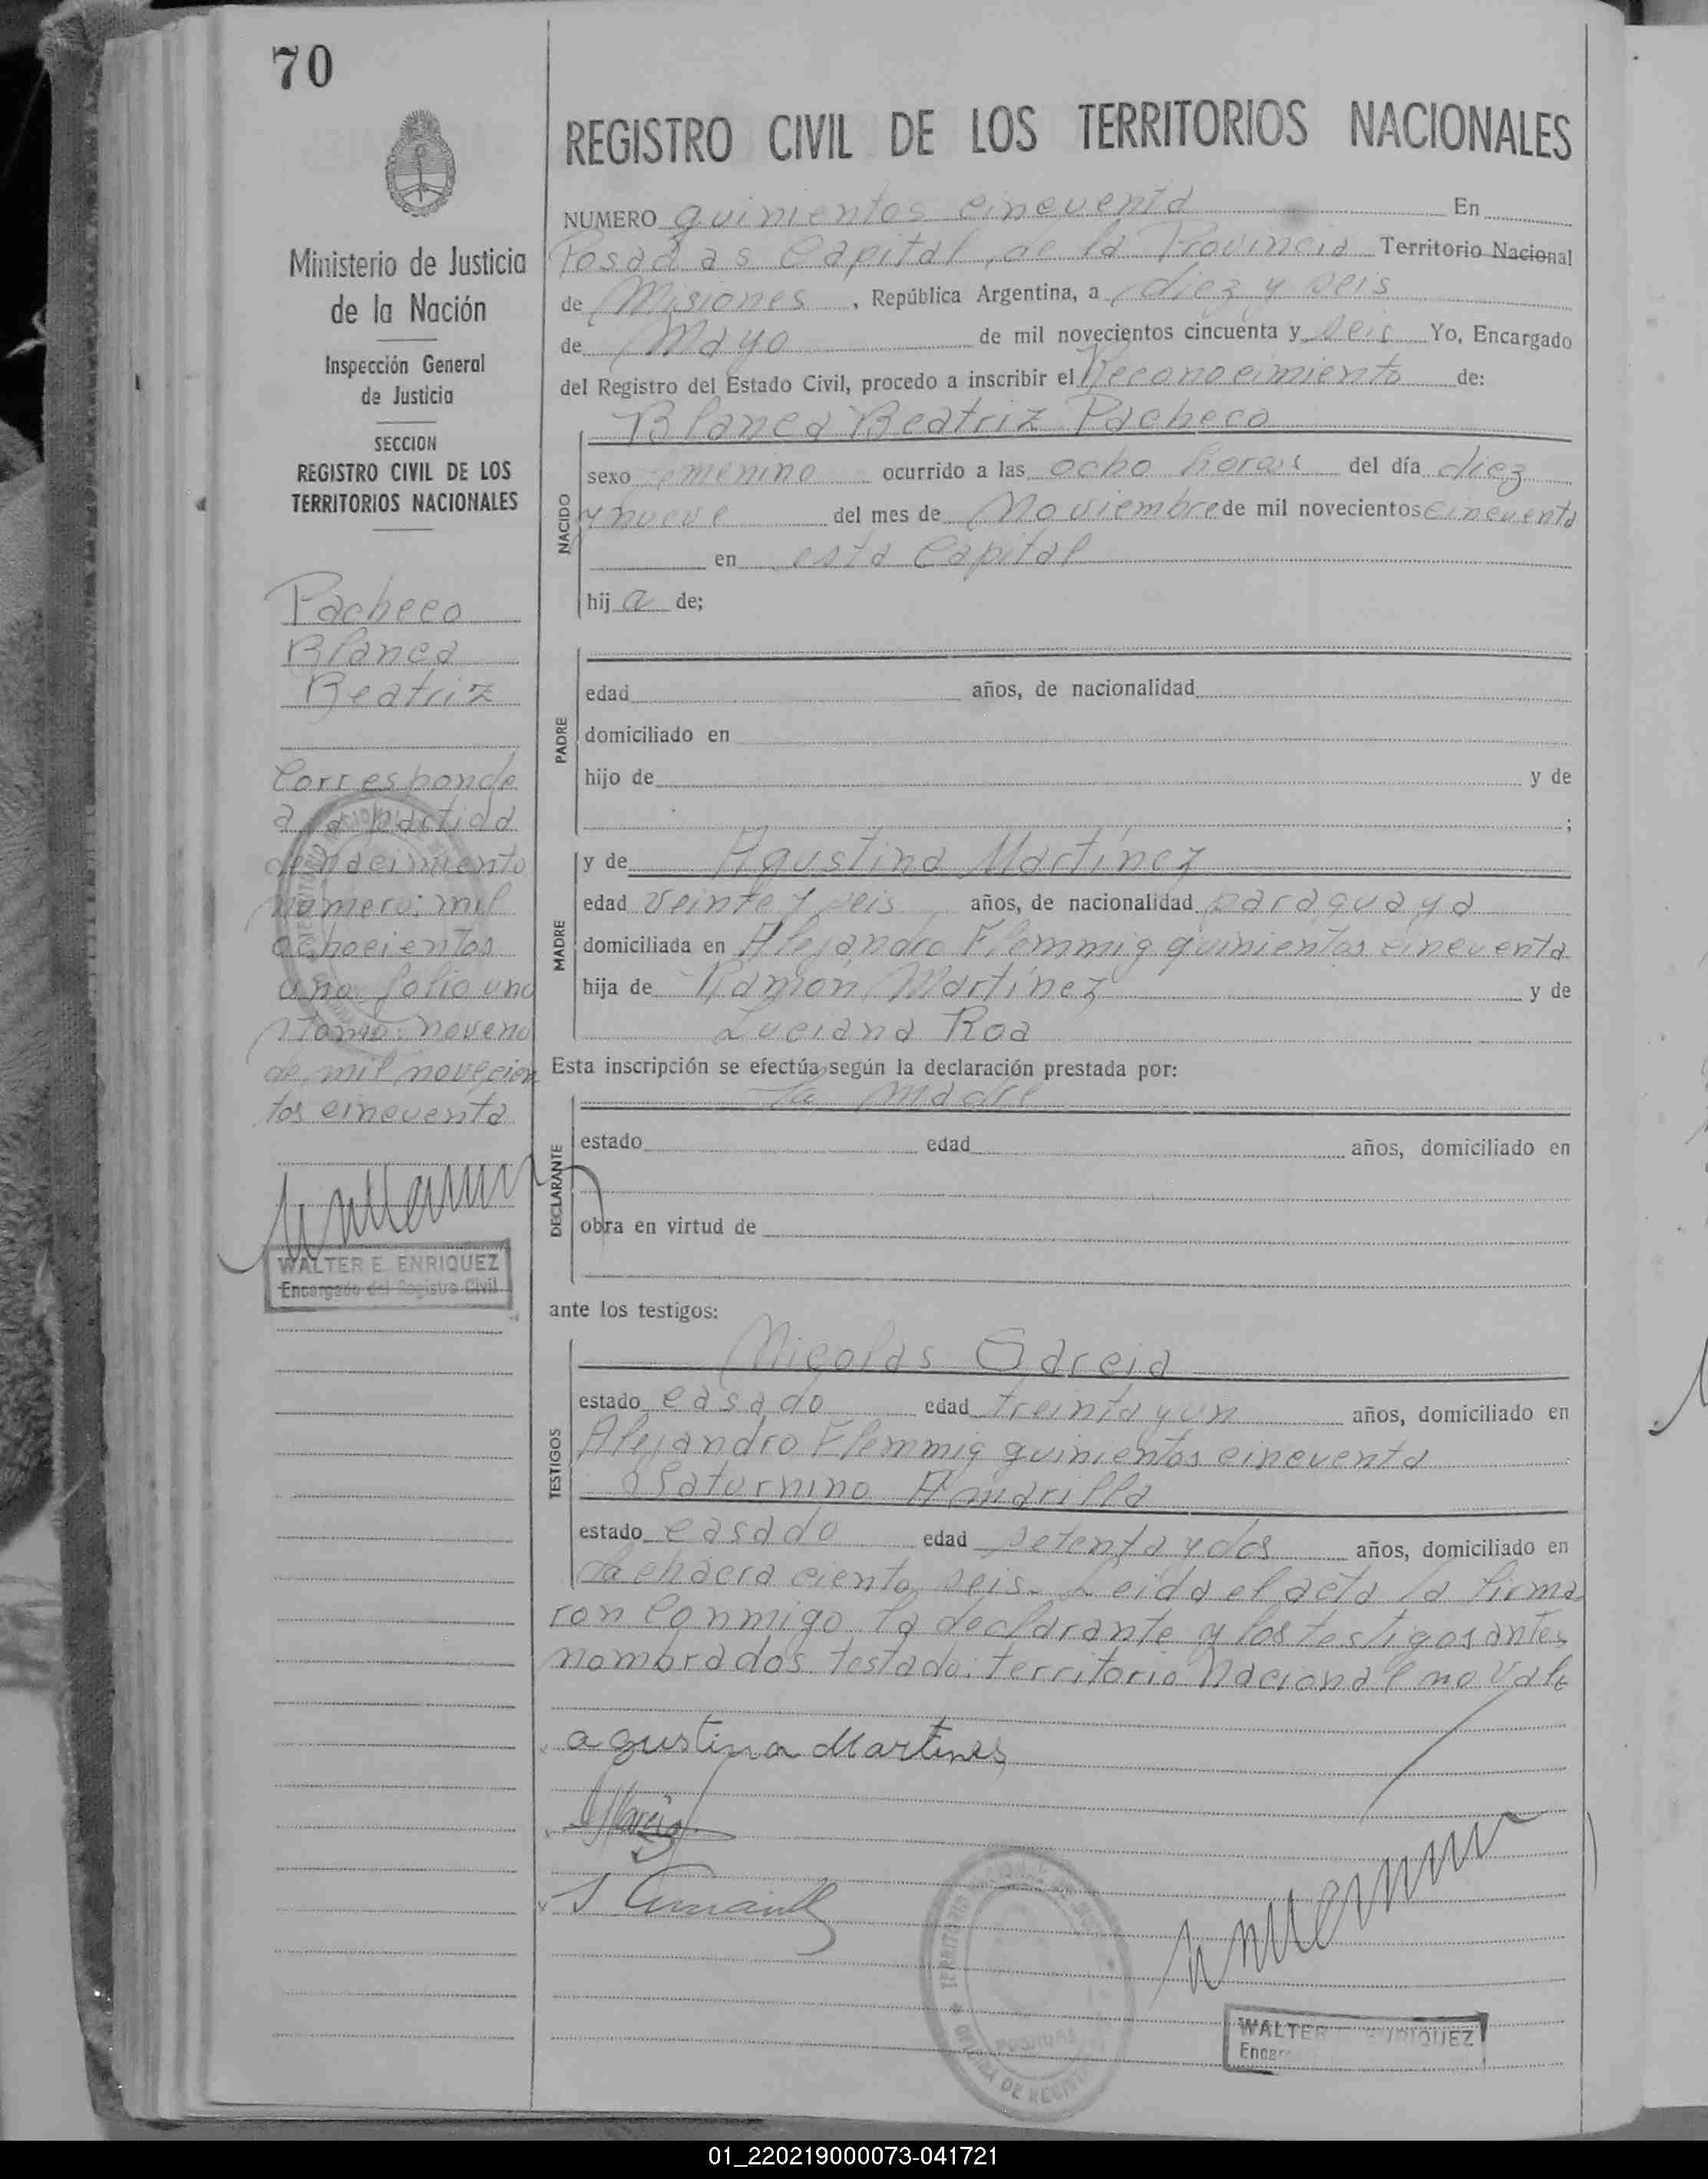 70
Ministerio de Justicia
de la Nación
Inspección General
de Justicia
SECCION
REGISTRO CIVIL DE LOS
TERRITORIOS NACIONALES
Pacheco
Blanca
Beatriz
Corresponde
a la partida
de nacimiento
número: mil
ochocientos
uno folio uno
tomo: noveno
de mil novecien
tos cincuenta
WALTER E. ENRIQUEZ
Encargado del Registro Civil
REGISTRO CIVIL DE LOS TERRITORIOS NACIONALES
NUMERO quinientos cincuenta En
Posadas Capital, de la Provincia Territorio Nacional
de Misiones, República Argentina, a diez y seis
de Mayo de mil novecientos cincuenta y seis Yo, Encargado
del Registro del Estado Civil, procedo a inscribir el Reconocimiento de:
Blanca Beatriz Pacheco
NACIDO
sexo femenino ocurrido a las ocho horas del día diez
y nueve del mes de Noviembre de mil novecientos cincuenta
en esta Capital
hija de;
PADRE
edad años, de nacionalidad
domiciliado en
hijo de y de
;
MADRE
y de Agustina Martínez
edad veinte y seis años, de nacionalidad paraguaya
domiciliada en Alejandro Flemmig quinientos cincuenta
hija de Ramón Martínez y de
Luciana Roa
Esta inscripción se efectúa según la declaración prestada por:
la madre
DECLARANTE
estado edad años, domiciliado en
obra en virtud de
ante los testigos:
TESTIGOS
Nicolás Garcia
estado casado edad treinta y un años, domiciliado en
Alejandro Flemmig quinientos cincuenta
Saturnino Amarilla
estado casado edad setenta y dos años, domiciliado en
chacra ciento seis. Leida el acta la firma
ron conmigo la declarante y los testigos antes
nombrados testado: territorio Nacional no vale
agustina Martines
WALTER E. ENRIQUEZ
01_220219000073-041721